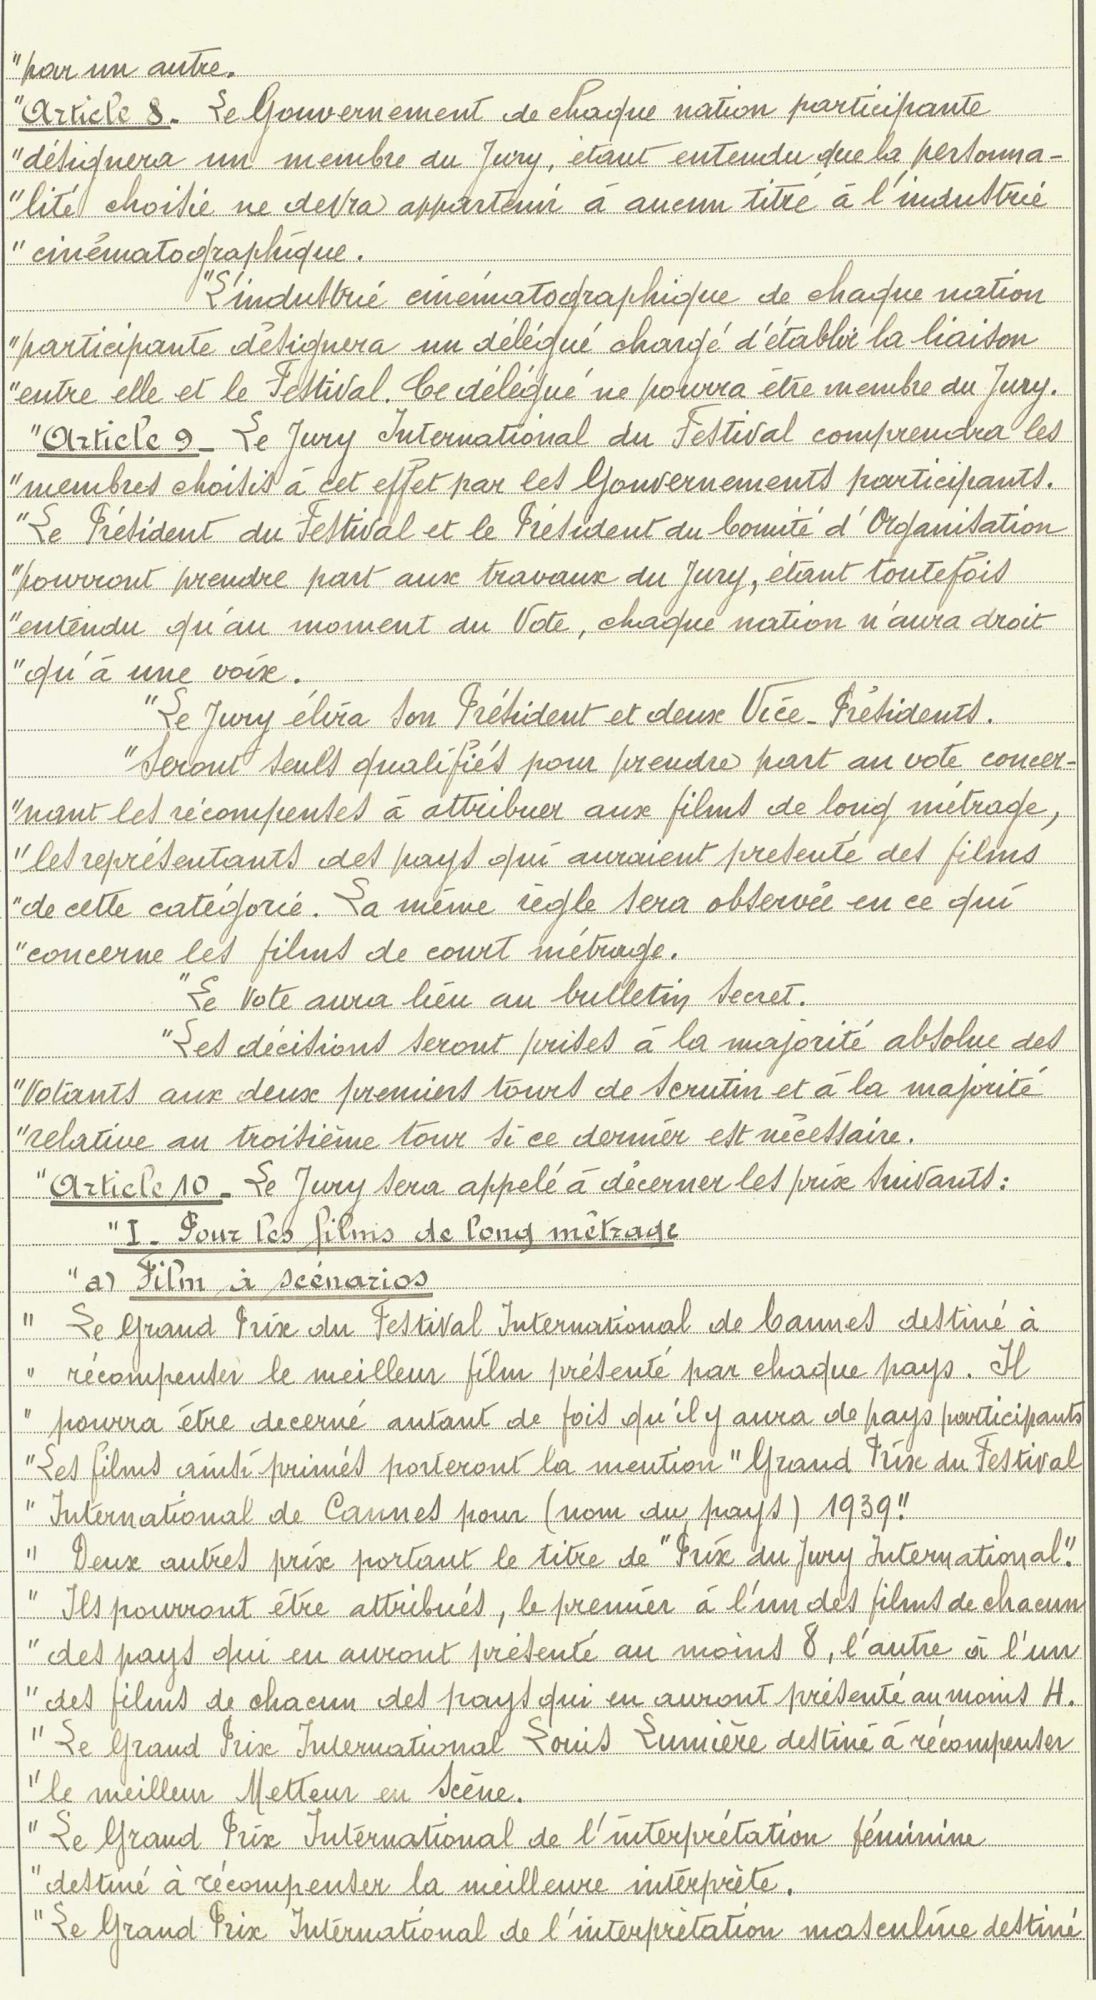 "par un autre.
"Article 8. Le Gouvernement de chaque nation participante
"désignera un membre du Jury, étant entendu que la personna-
"lité choisie ne devra appartenir à aucun titre à l'industrie
"cinématographique.
"L'industrie cinématographique de chaque nation
"participante désignera un délégué chargé d'établir la liaison
"entre elle et le Festival. Ce délégué ne pourra être membre du Jury.
"Article 9_ Le Jury International du Festival comprendra les
"membres choisis à cet effet par les Gouvernements participants.
"Le Président du Festival et le Président du Comité d'Organisation
"pourront prendre part aux travaux du Jury, étant toutefois
"entendu qu'au moment du Vote, chaque nation n'aura droit
"qu'à une voix.
"Le Jury élira son Président et deux Vice-Présidents.
"Seront seuls qualifiés pour prendre part au vote concer-
"nant les récompenses à attribuer aux films de long métrage,
"les représentants des pays qui auraient presenté des films
"de cette catégorie. La même règle sera observée en ce qui
"concerne les films de court métrage.
"Le Vote aura lieu au bulletin secret.
"Les décisions seront prises à la majorité absolue des
"Votants aux deux premiers tours de scrutin et à la majorité
"relative au troisième tour si ce dernier est nécessaire.
"Article 10_ Le Jury sera appelé à décerner les prix suivants:
"I_ Pour les films de long métrage
"a) Film à scénarios
" Le Grand Prix du Festival International de Cannes destiné à
" récompenser le meilleur film présenté par chaque pays. Il
" pourra être decerné autant de fois qu'il y aura de pays participants
"Les films ainsi primés porteront la mention "Grand Prix du Festival
" International de Cannes pour (nom du pays) 1939".
" Deux autres prix portant le titre de "Prix du Jury International".
" Ils pourront être attribués, le premier à l'un des films de chacun
" des pays qui en auront présenté au moins 8, l'autre à l'un
" des films de chacun des pays qui en auront présenté au moins 4.
" Le Grand Prix International Louis Lumière destiné à récompenser
" le meilleur Metteur en Scène.
" Le Grand Prix International de l'interprétation féminine
" destiné à récompenser la meilleure interprète.
" Le Grand Prix International de l'interprétation masculine destiné